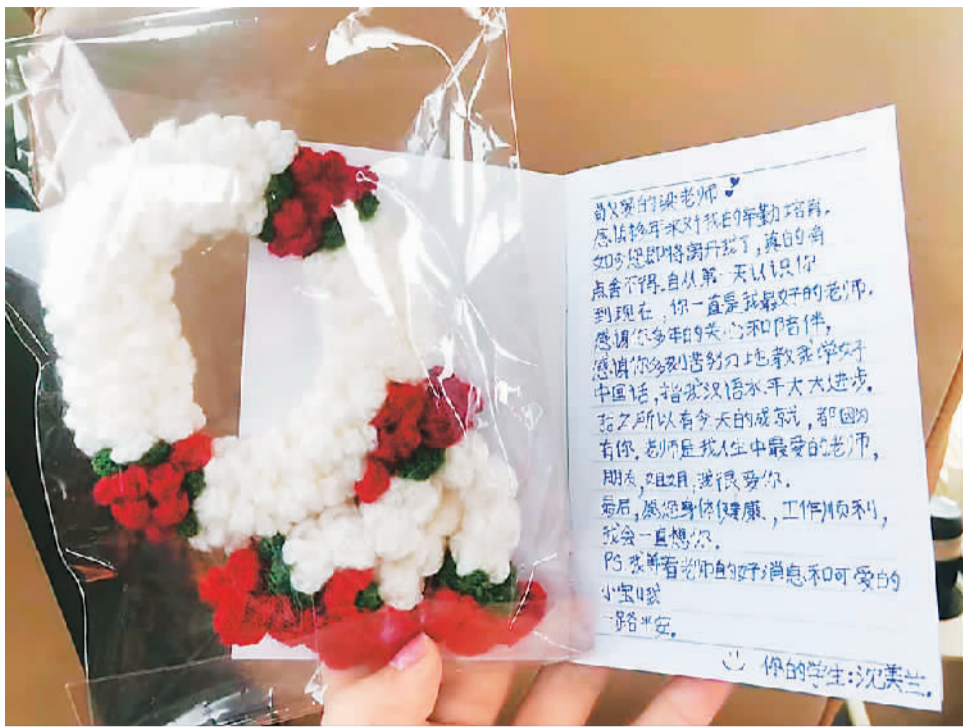 敬爱的梁老师
感谢您年来对我的辛勤培育。
如今您即将离开我了,真的有
点舍不得。自从第一天认识你
到现在,你一直是我最好的老师。
感谢你多年的关心和陪伴,
感谢你多刻苦努力地教我学好
中国话,指我汉语水平大大进步。
我之所以有今天的成就,都因为
有你,老师是我人生中最爱的老师,
朋友,姐姐,我很爱你。
最后,愿您身体健康,工作顺利,
我会一直想你。
PS.我等着老师的好消息和可爱的
小宝贝哦
一路平安。
你的学生:沈美兰.